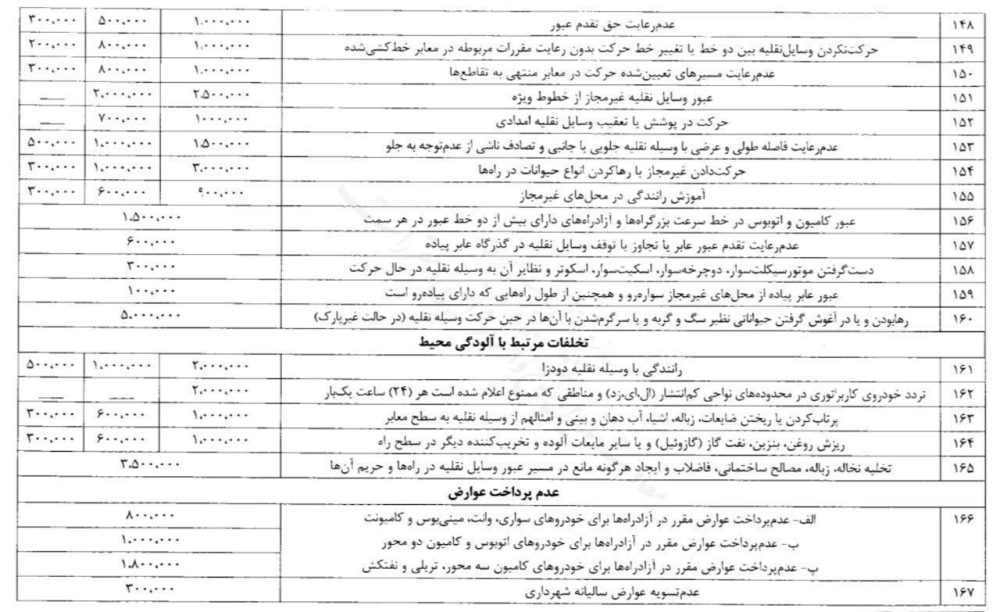 ۱۴۸ عدم‌رعایت حق تقدم عبور ۱.۰۰۰.۰۰۰ ۵۰۰.۰۰۰ ۳۰۰.۰۰۰
۱۴۹ حرکت‌نکردن وسایل‌نقلیه بین دو خط یا تغییر خط حرکت بدون رعایت مقررات مربوطه در معابر خط‌کشی‌شده ۱.۰۰۰.۰۰۰ ۸۰۰.۰۰۰ ۲۰۰.۰۰۰
۱۵۰ عدم‌رعایت مسیرهای تعیین‌شده حرکت در معابر منتهی به تقاطع‌ها ۱.۰۰۰.۰۰۰ ۸۰۰.۰۰۰ ۳۰۰.۰۰۰
۱۵۱ عبور وسایل نقلیه غیرمجاز از خطوط ویژه ۲.۵۰۰.۰۰۰ ۲.۰۰۰.۰۰۰ —
۱۵۲ حرکت در پوشش یا تعقیب وسایل نقلیه امدادی ۱۰۰۰.۰۰۰ ۷۰۰.۰۰۰ —
۱۵۳ عدم‌رعایت فاصله طولی و عرضی با وسیله نقلیه جلویی یا جانبی و تصادف ناشی از عدم‌توجه به جلو ۱.۵۰۰.۰۰۰ ۱.۰۰۰.۰۰۰ ۵۰۰.۰۰۰
۱۵۴ حرکت‌دادن غیرمجاز یا رهاکردن انواع حیوانات در راه‌ها ۳.۰۰۰.۰۰۰ ۱.۰۰۰.۰۰۰ ۳۰۰.۰۰۰
۱۵۵ آموزش رانندگی در محل‌های غیرمجاز ۹۰۰.۰۰۰ ۶۰۰.۰۰۰ ۳۰۰.۰۰۰
۱۵۶ عبور کامیون و اتوبوس در خط سرعت بزرگراه‌ها و آزادراه‌های دارای بیش از دو خط عبور در هر سمت ۱.۵۰۰.۰۰۰
۱۵۷ عدم‌رعایت تقدم عبور عابر یا تجاوز یا توقف وسایل نقلیه در گذرگاه عابر پیاده ۶۰۰.۰۰۰
۱۵۸ دست‌گرفتن موتورسیکلت‌سوار، دوچرخه‌سوار، اسکیت‌سوار، اسکوتر و نظایر آن به وسیله نقلیه در حال حرکت ۳۰۰.۰۰۰
۱۵۹ عبور عابر پیاده از محل‌های غیرمجاز سواره‌رو و همچنین از طول راه‌هایی که دارای پیاده‌رو است ۱۰۰.۰۰۰
۱۶۰ رهابودن و یا در آغوش گرفتن حیواناتی نظیر سگ و گربه و یا سرگرم‌شدن با آن‌ها در حین حرکت وسیله نقلیه (در حالت غیرپارک) ۵.۰۰۰.۰۰۰
تخلفات مرتبط با آلودگی محیط
۱۶۱ رانندگی با وسیله نقلیه دودزا ۲.۰۰۰.۰۰۰ ۱.۰۰۰.۰۰۰ ۵۰۰.۰۰۰
۱۶۲ تردد خودروی کاربراتوری در محدوده‌های نواحی کم‌انتشار (ال.ای.زد) و مناطقی که ممنوع اعلام شده است هر (۲۴) ساعت یک‌بار ۲.۰۰۰.۰۰۰ — —
۱۶۳ پرتاب‌کردن یا ریختن ضایعات، زباله، اشیا، آب دهان و بینی و امثالهم از وسیله نقلیه به سطح معابر ۱.۰۰۰.۰۰۰ ۶۰۰.۰۰۰ ۳۰۰.۰۰۰
۱۶۴ ریزش روغن، بنزین، نفت گاز (گازوئیل) و یا سایر مایعات آلوده و تخریب‌کننده دیگر در سطح راه ۱.۰۰۰.۰۰۰ ۶۰۰.۰۰۰ ۳۰۰.۰۰۰
۱۶۵ تخلیه نخاله، زباله، مصالح ساختمانی، فاضلاب و ایجاد هرگونه مانع در مسیر عبور وسایل نقلیه در راه‌ها و حریم آن‌ها ۳.۵۰۰.۰۰۰
عدم پرداخت عوارض
۱۶۶ الف- عدم‌پرداخت عوارض مقرر در آزادراه‌ها برای خودروهای سواری، وانت، مینی‌بوس و کامیونت ۸۰۰.۰۰۰
ب- عدم‌پرداخت عوارض مقرر در آزادراه‌ها برای خودروهای اتوبوس و کامیون دو محور ۱.۰۰۰.۰۰۰
پ- عدم‌پرداخت عوارض مقرر در آزادراه‌ها برای خودروهای کامیون سه محور، تریلی و نفتکش ۱.۸۰۰.۰۰۰
۱۶۷ عدم‌تسویه عوارض سالیانه شهرداری ۳۰۰.۰۰۰